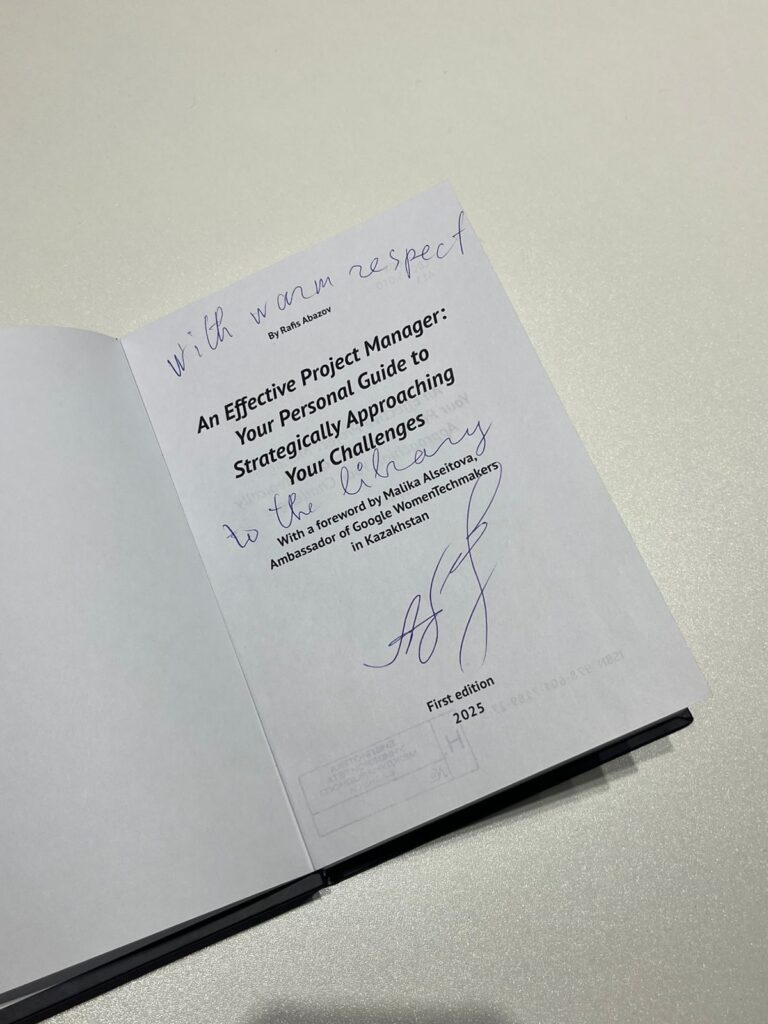 with warm respect
By Rafis Abazov
An Effective Project Manager:
Your Personal Guide to
Strategically Approaching
Your Challenges
to the library
With a foreword by Malika Alseitova,
Ambassador of Google WomenTechmakers
in Kazakhstan
First edition
2025